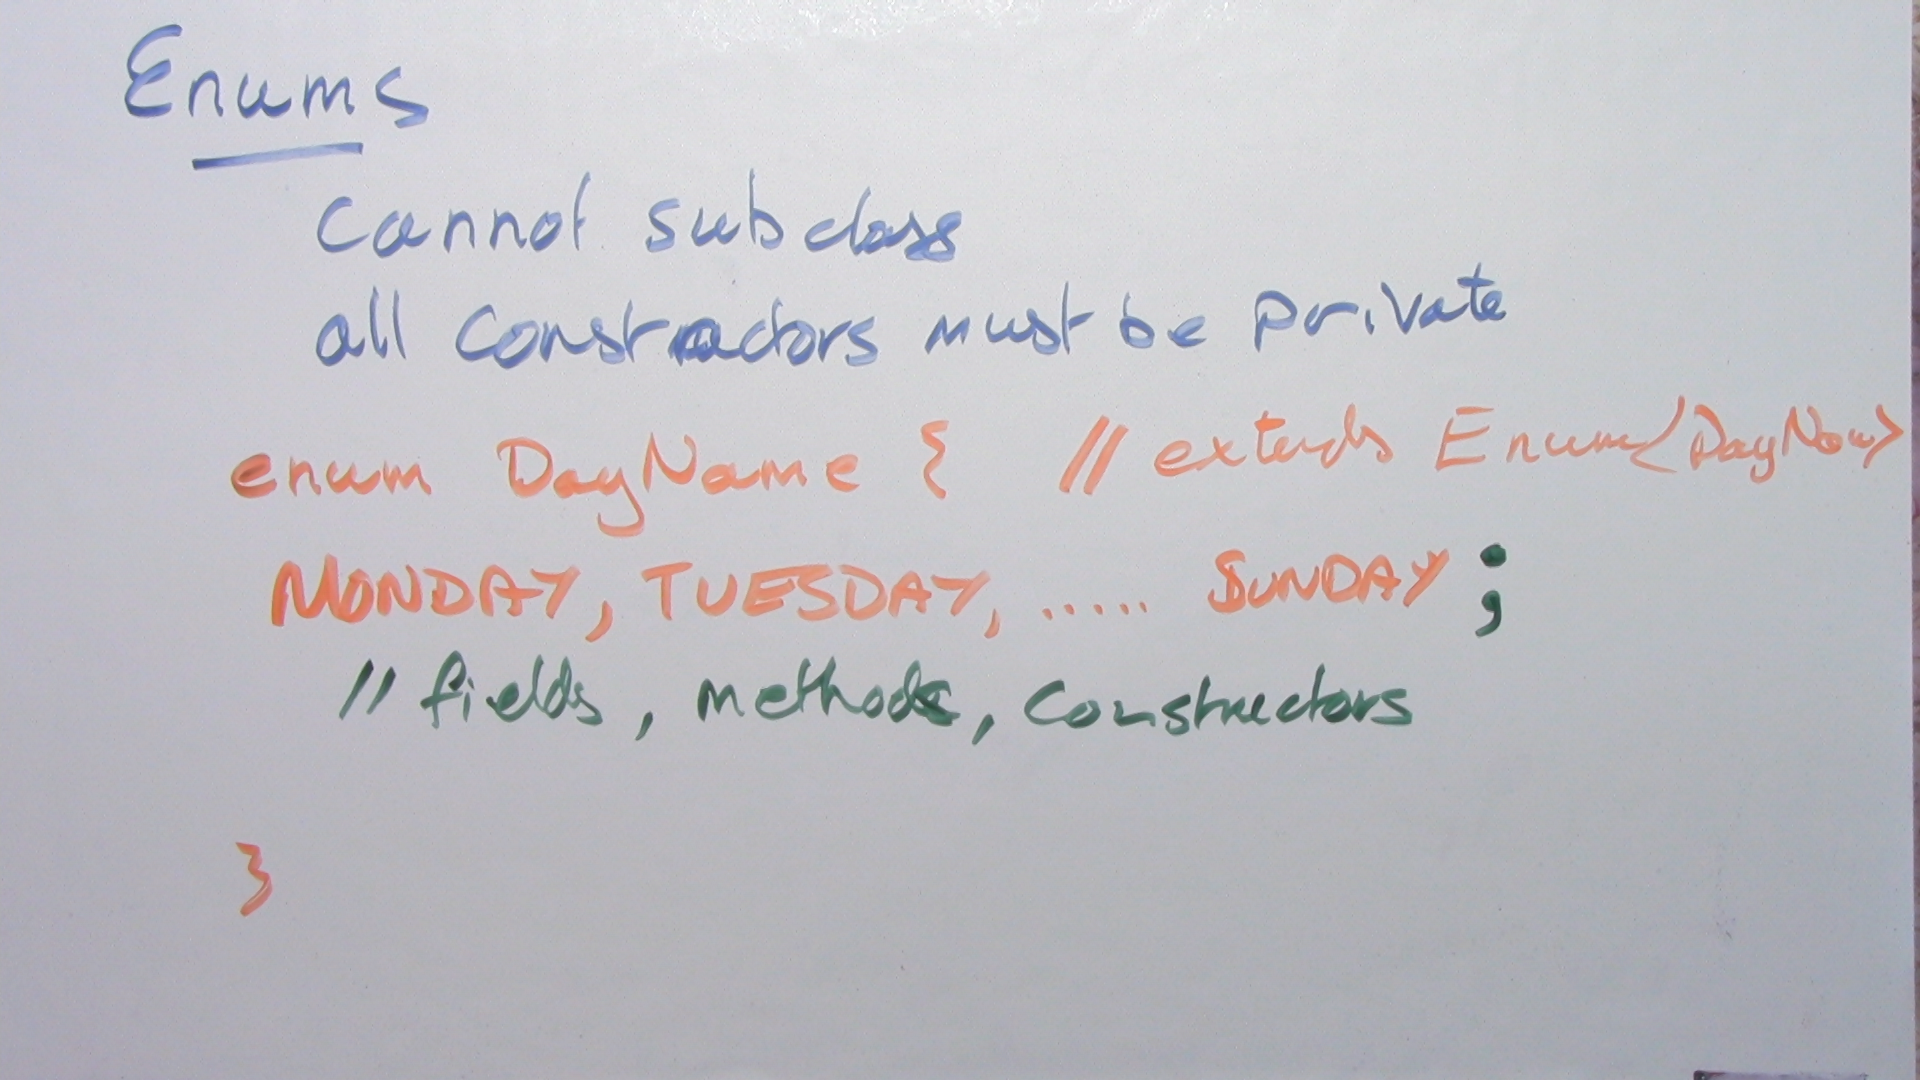 Enums
cannot subclass
all constructors must be private
enum DayName { // extends Enum<DayName>
MONDAY, TUESDAY, ..... SUNDAY ;
// fields, methods, constructors
}